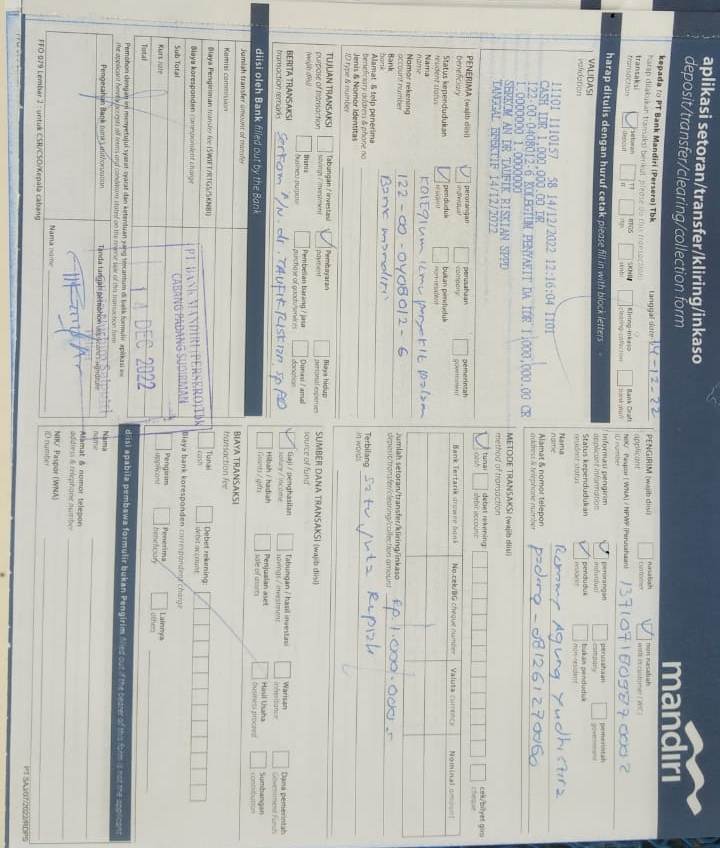 aplikasi setoran/transfer/kliring/inkaso
deposit/transfer/clearing/collection form
mandiri
kepada to PT Bank Mandiri (Persero) Tbk
tanggal date 14-12-22
harap dilakukan transaksi berikut please do this transaction
transaksi
transaction
Setoran
deposit
TT
tt
RTGS
SKNBI
sknbi
Kliring-Inkaso
clearing-collection
Bank Draft
bank draft
harap ditulis dengan huruf cetak please fill in with block letters
VALIDASI
validation
11101 1110157 58 14/12/2022 12:16:04 1101
CASH IDR 1,000,000.00 DR
SERKOM AN DR TAUFIK RISKIAN SPPD
TANGGAL EFEKTIF 14/12/2022
PENERIMA (wajib diisi)
beneficiary
perorangan
individual
perusahaan
company
pemerintah
government
Status kependudukan
resident status
penduduk
resident
bukan penduduk
non-resident
Nama
name
Kolegium Ilmu penyakit Dalam
Nomor rekening
account number
122-00-0408012-6
Bank
bank
Bank mandiri
Alamat & telp penerima
beneficiary address & phone no
Jenis & Nomor Identitas
ID type & number
TUJUAN TRANSAKSI
purpose of transaction
(wajib diisi)
Tabungan / investasi
savings / investment
Pembayaran
payment
Biaya hidup
personal expenses
Bisnis
business purpose
Pembelian barang / jasa
purchase of goods/services
Donasi / amal
donation
BERITA TRANSAKSI
transaction remarks
Serkom A/N dr. TAUFIK Riskian Sp PD
diisi oleh Bank filled out by the Bank
Jumlah transfer amount of transfer
Komisi commission
Biaya Pengiriman transfer fee (SWIFT/RTGS/SKNBI)
Biaya korespondan correspondent charge
Sub Total
Kurs rate
Total
PT. BANK MANDIRI (PERSERO) Tbk
CABANG PADANG SUDIRMAN
14 DEC 2022
Pemohon dengan ini menyetujui syarat-syarat dan ketentuan yang tercantum di balik formulir aplikasi ini
Pengesahan Bank bank's authorization
Tanda tangan pemohon applicant's signature
Nama name
FFO 079 Lembar 2 : untuk CSR/CSO/Kepala cabang
PENGIRIM (wajib diisi)
applicant
nasabah
customer
non nasabah
walk in customer (WIC)
NIK / Paspor (WNA) / NPWP (Perusahaan)
ID number
Informasi pengirim
applicant information
perorangan
individual
perusahaan
company
pemerintah
government
Status kependudukan
resident status
penduduk
resident
bukan penduduk
non-resident
Nama
name
Alamat & nomor telepon
address & telephone number
padang - 081261270060
METODE TRANSAKSI (wajib diisi)
method of transaction
tunai
cash
debit rekening
debit account
cek/bilyet giro
cheque
Bank Tertarik drawee bank
No.cek/BG cheque number
Valuta currency
Nominal amount
Jumlah setoran/transfer/kliring/inkaso
deposit/transfer/clearing/collection amount
Rp 1.000.000,-
Terbilang
in words
Satu juta Rupiah
SUMBER DANA TRANSAKSI (wajib diisi)
source of fund
Gaji / penghasilan
salary / income
Tabungan / hasil investasi
savings / investment
Warisan
inheritance
Dana pemerintah
Government Funds
Hibah / hadiah
Grants / gifts
Penjualan aset
sale of assets
Hasil Usaha
business proceed
Sumbangan
contribution
BIAYA TRANSAKSI
transaction fee
Tunai
cash
Debet rekening
debit account
Biaya bank koresponden correspondent charge
Pengirim
applicant
Penerima
beneficiary
Lainnya
others
diisi apabila pembawa formulir bukan Pengirim filled out if the bearer of this form is not the applicant
Nama
name
Alamat & nomor telepon
address & telephone number
NIK / Paspor (WNA)
ID number